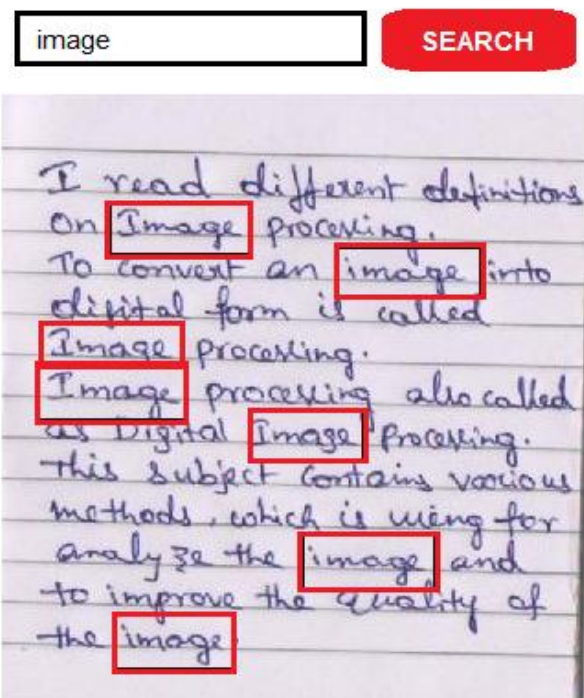 image
SEARCH
I read different definitions
on Image processing.
To convert an image into
digital form is called
Image processing.
Image processing also called
as Digital Image Processing.
This subject Contains various
methods, which is using for
analyze the image and
to improve the quality of
the image.